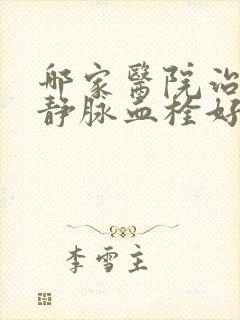 哪家醫院治
静脉血栓好
李雪主